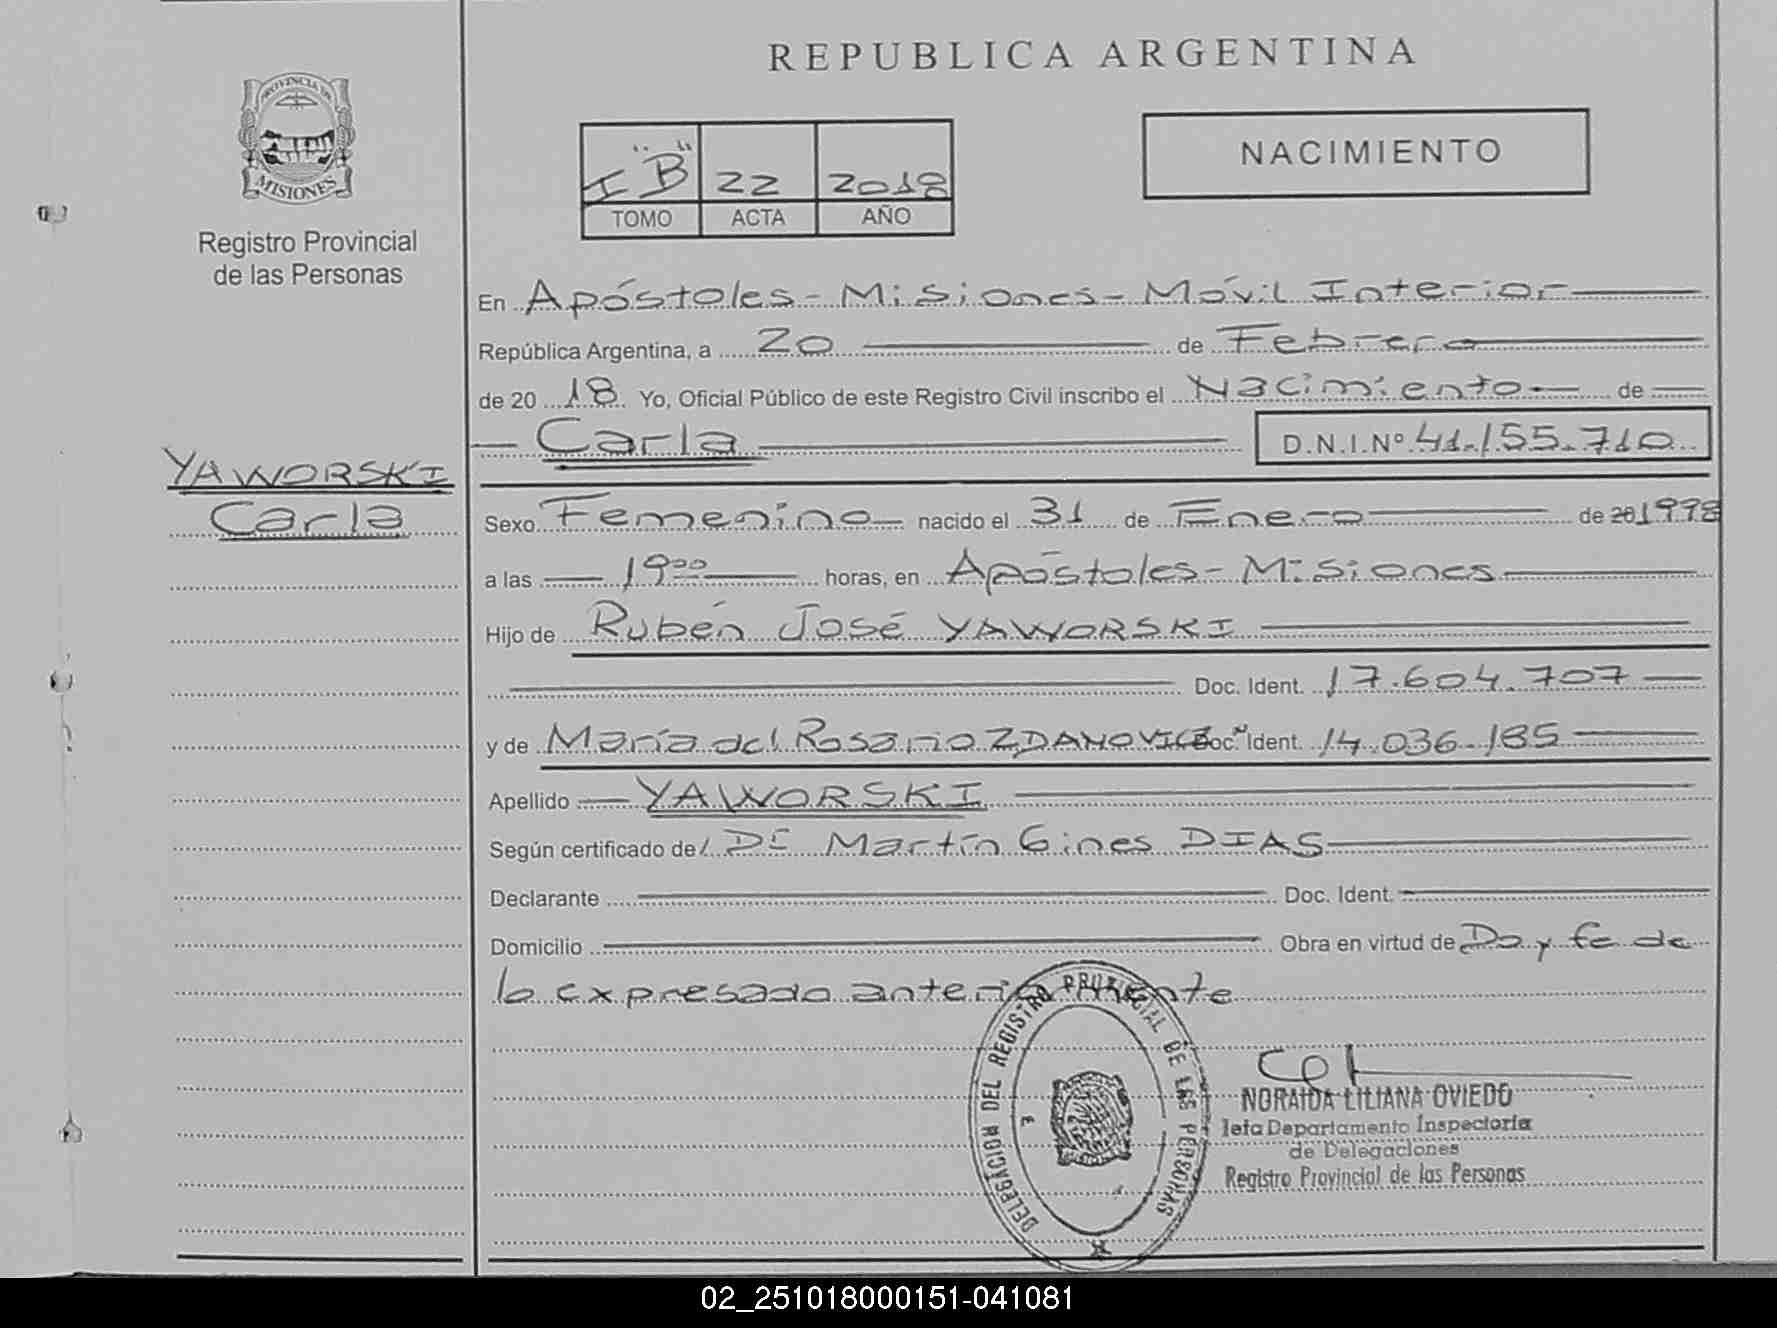 REPUBLICA ARGENTINA
PROVINCIA DE
MISIONES
Registro Provincial
de las Personas
I "B" 22 2018
TOMO ACTA AÑO
NACIMIENTO
En Apóstoles - Misiones - Móvil Interior
República Argentina, a 20 de Febrero
de 20 18 Yo, Oficial Público de este Registro Civil inscribo el Nacimiento de
Carla D.N.I.Nº 41.155.710
YAWORSKI
Carla
Sexo Femenino nacido el 31 de Enero de 20 1998
a las 19⁰⁰ horas, en Apóstoles - Misiones
Hijo de Rubén José YAWORSKI
Doc. Ident. 17.604.707
y de María del Rosario ZDANOVICZ Doc. Ident. 14.036.185
Apellido YAWORSKI
Según certificado de/ Dr Martín Gines DIAS
Declarante Doc. Ident.
Domicilio Obra en virtud de Doy fe de
lo expresado anteriormente
DELEGACION DEL REGISTRO PROVINCIAL DE LAS PERSONAS
NORAIDA LILIANA OVIEDO
Jefa Departamento Inspectoría
de Delegaciones
Registro Provincial de las Personas
02_251018000151-041081